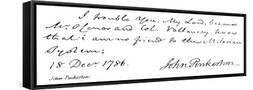 I trouble You, My Lord, because
Mr. O'Conor and Col. Vallancey know
that I am no friend to the Milesian
System;
18 Decr. 1786. John Pinkerton.
John Pinkerton.